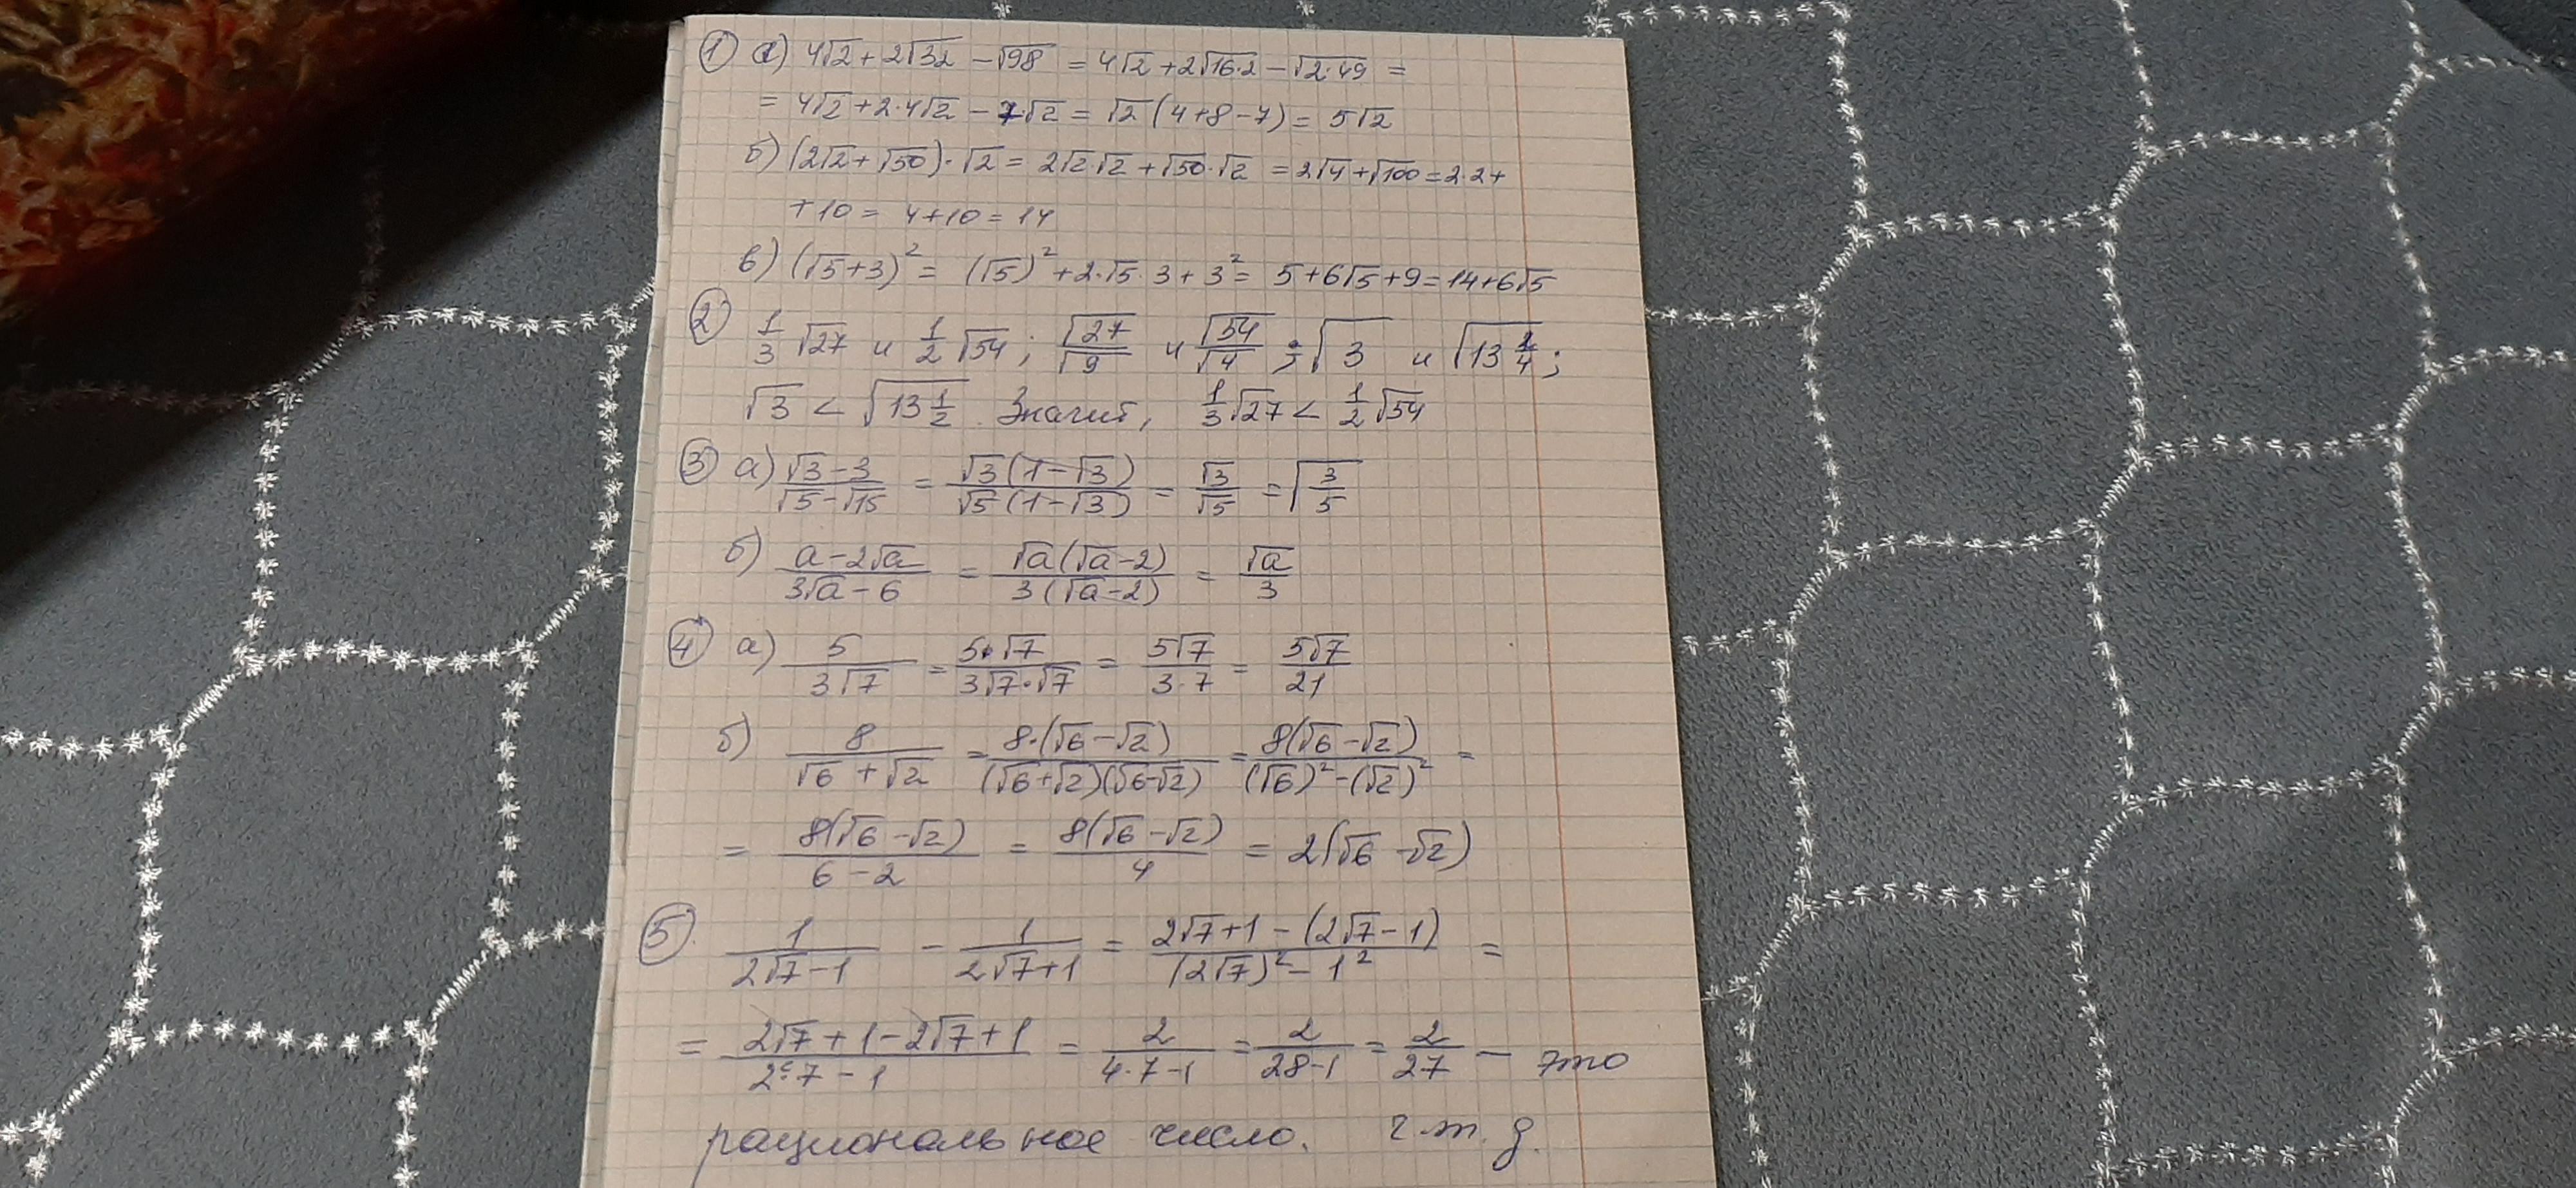 ① а) 4√2 + 2√32 − √98 = 4√2 + 2√16·2 − √2·49 =
= 4√2 + 2·4√2 − 7·√2 = √2 (4+8−7) = 5√2
б) (2√2 + √50)·√2 = 2√2·√2 + √50·√2 = 2√4 + √100 = 2·2+
+10 = 4+10 = 14
в) (√5+3)² = (√5)² + 2·√5·3 + 3² = 5+6√5+9 = 14+6√5
② 1/3 √27 и 1/2 √54 ; √27/√9 и √54/√4 ; √3 и √13 2/4 ;
√3 < √13 1/2 . Значит, 1/3 √27 < 1/2 √54
③ а) (√3−3)/(√5−√15) = √3(1−√3)/√5(1−√3) = √3/√5 = √3/5
б) (a−2√a)/(3√a−6) = √a(√a−2)/3(√a−2) = √a/3
④ а) 5/3√7 = 5·√7/3√7·√7 = 5√7/3·7 = 5√7/21
б) 8/(√6+√2) = 8·(√6−√2)/(√6+√2)(√6−√2) = 8(√6−√2)/((√6)²−(√2)²) =
= 8(√6−√2)/(6−2) = 8(√6−√2)/4 = 2(√6−√2)
⑤ 1/(2√7−1) − 1/(2√7+1) = (2√7+1−(2√7−1))/((2√7)²−1²) =
= (2√7+1−2√7+1)/(2²·7−1) = 2/(4·7−1) = 2/(28−1) = 2/27 — это
рациональное число. ч.т.д.